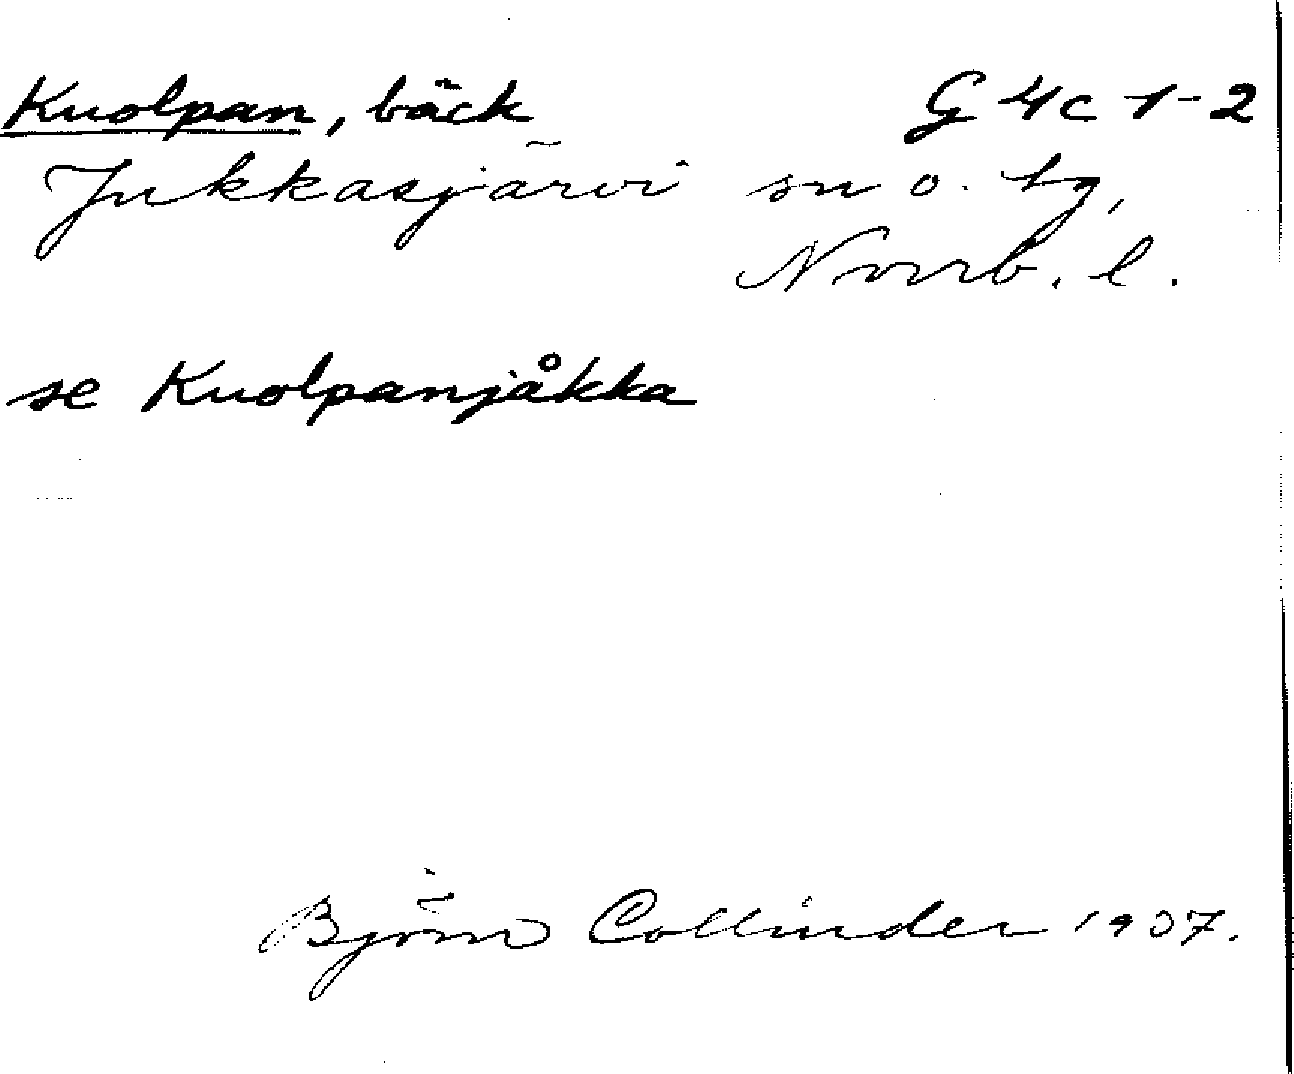 Kuolpan, bäck G 4c 1-2
Jukkasjärvi sn o. tg,
Norrb. l.
se Kuolpanjåkka
Björn Collinder 1937.